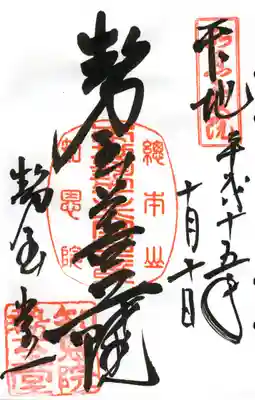 本地
平成十五年
十月十日
勢至菩薩
總本山
知恩院
勢至堂
知恩院
勢至堂